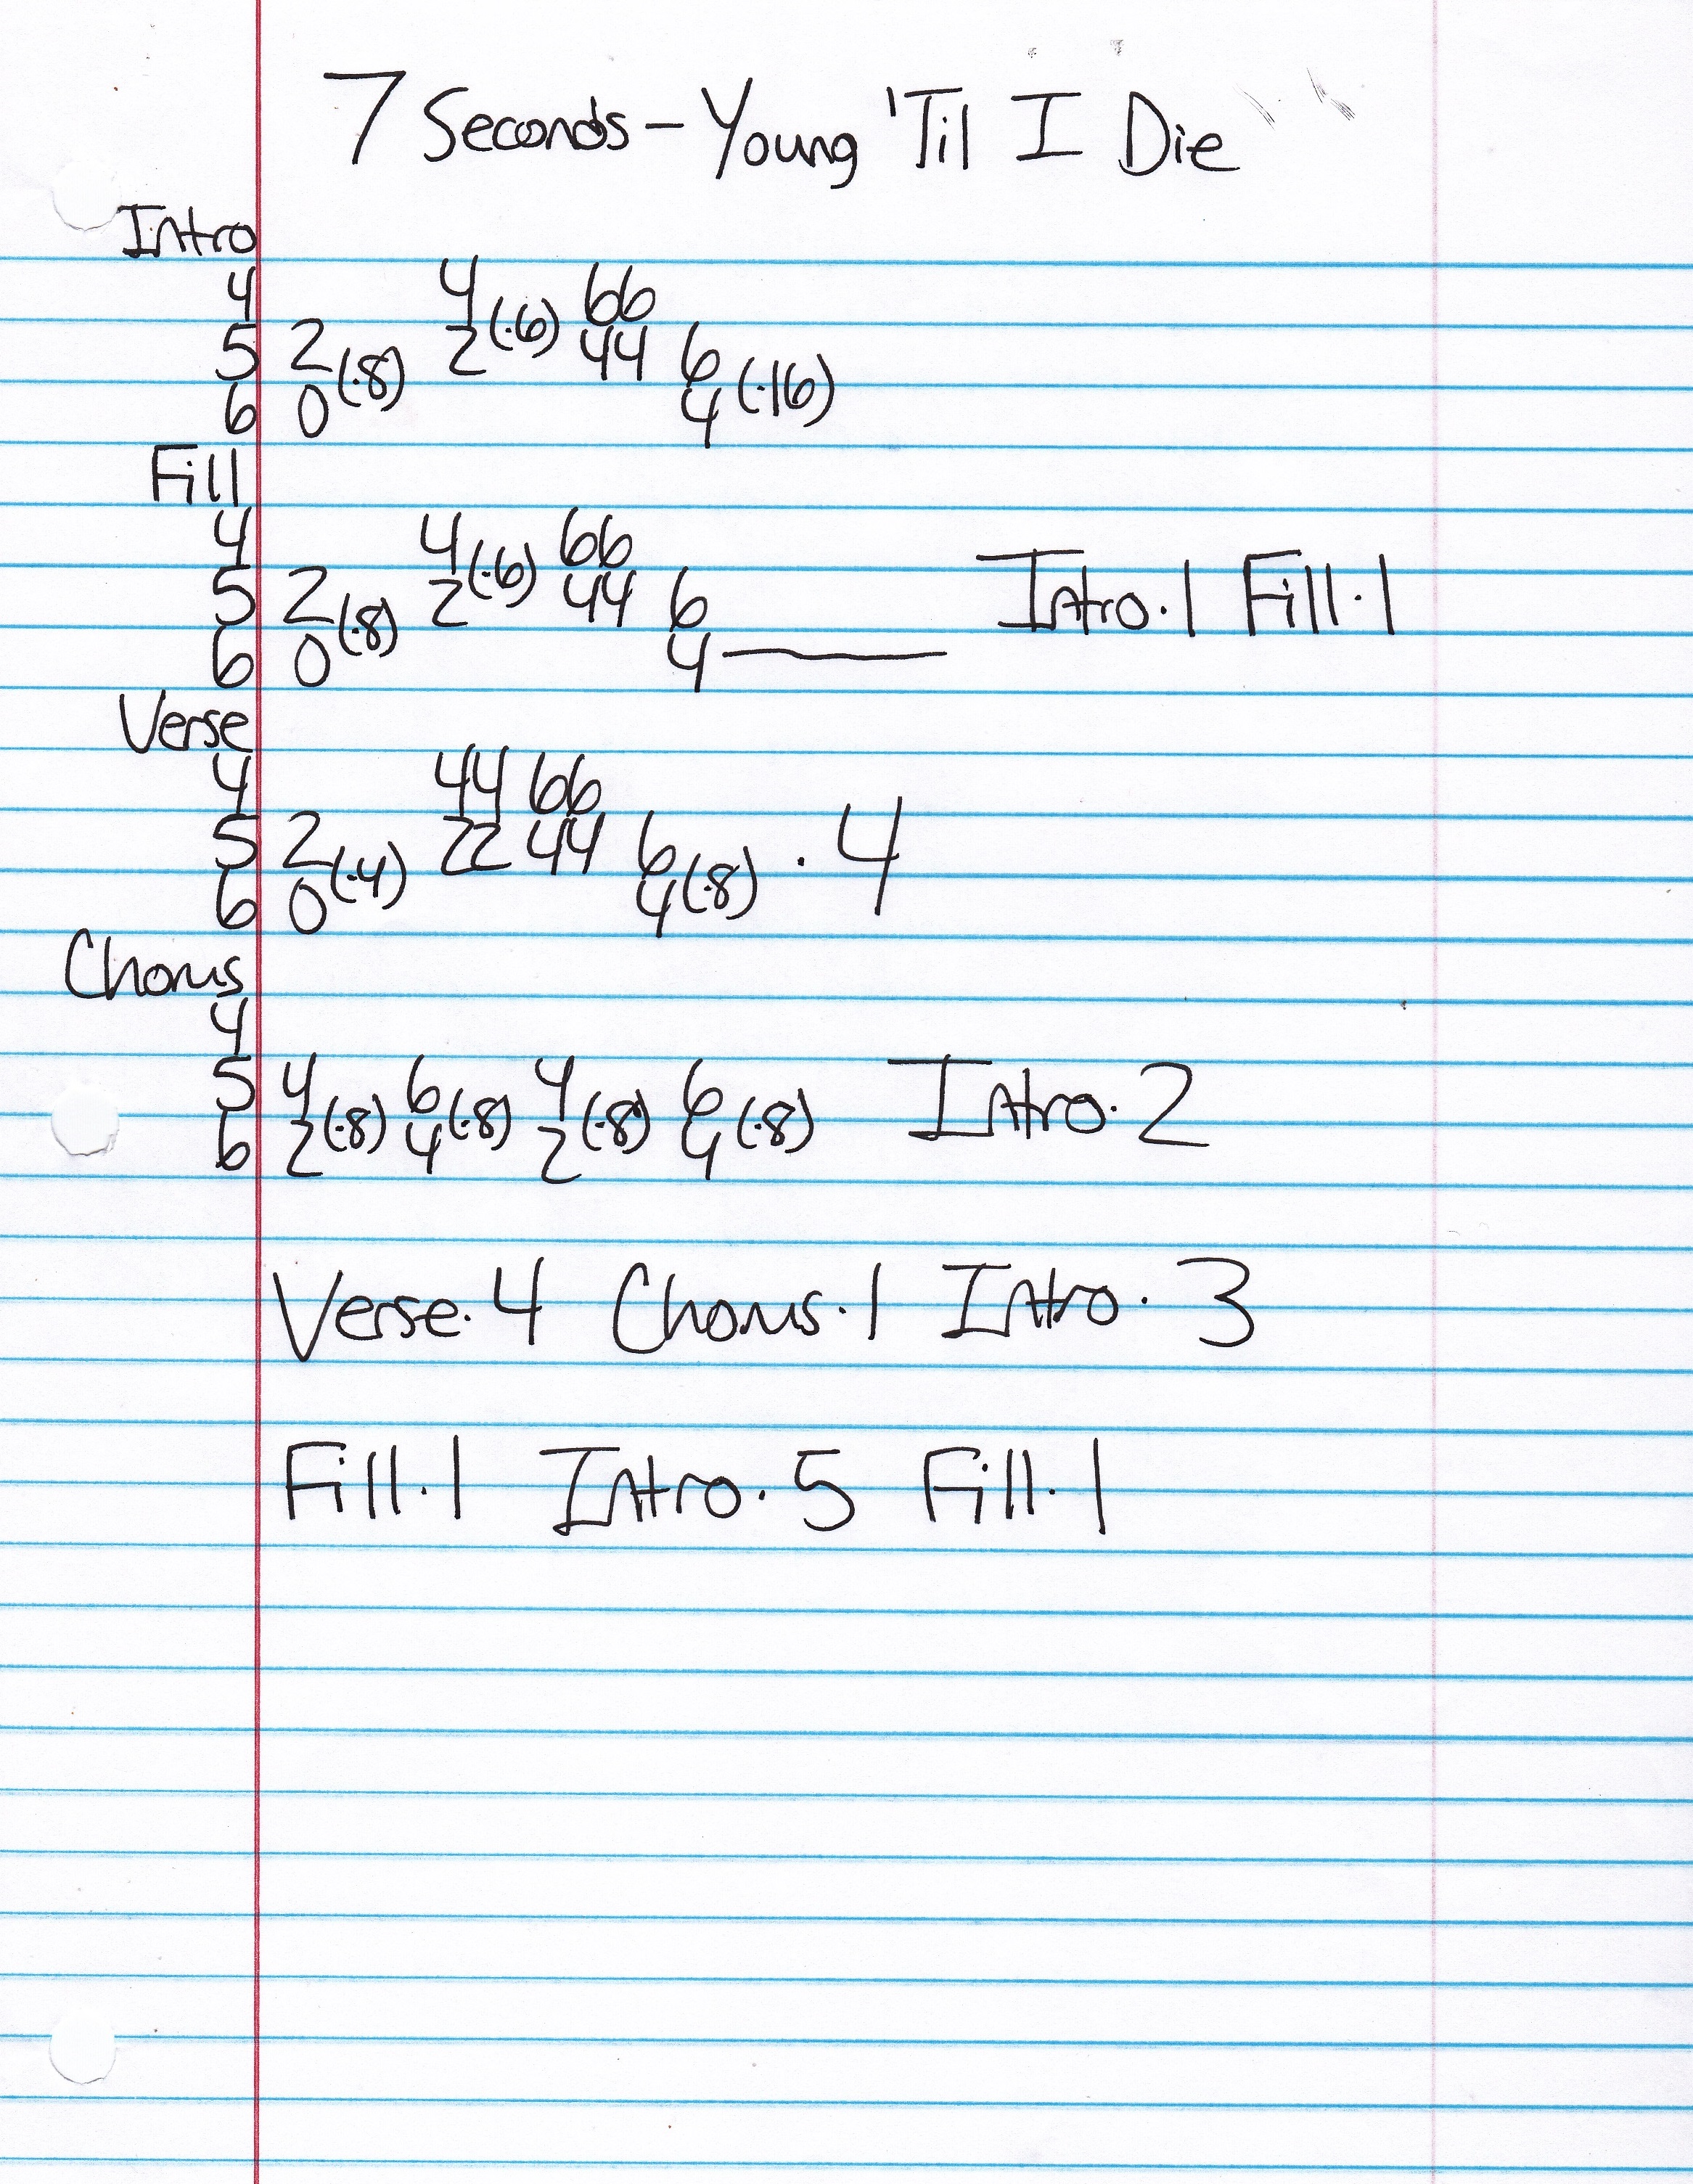 7 Seconds - Young 'Til I Die
Intro
4 4 66
5 2 (·8) 2 (·6) 44 6
6 0 4 (·16)
Fill
4 4 66
5 2 (·8) 2 (·6) 44 6 Intro·1 Fill·1
6 0 4 ———
Verse
4 44 66
5 2 (·4) 22 44 6 ·4
6 0 4 (·8)
Chorus
4
5 4 6 4 6 Intro·2
6 2 (·8) 4 (·8) 2 (·8) 4 (·8)
Verse·4 Chorus·1 Intro·3
Fill·1 Intro·5 Fill·1